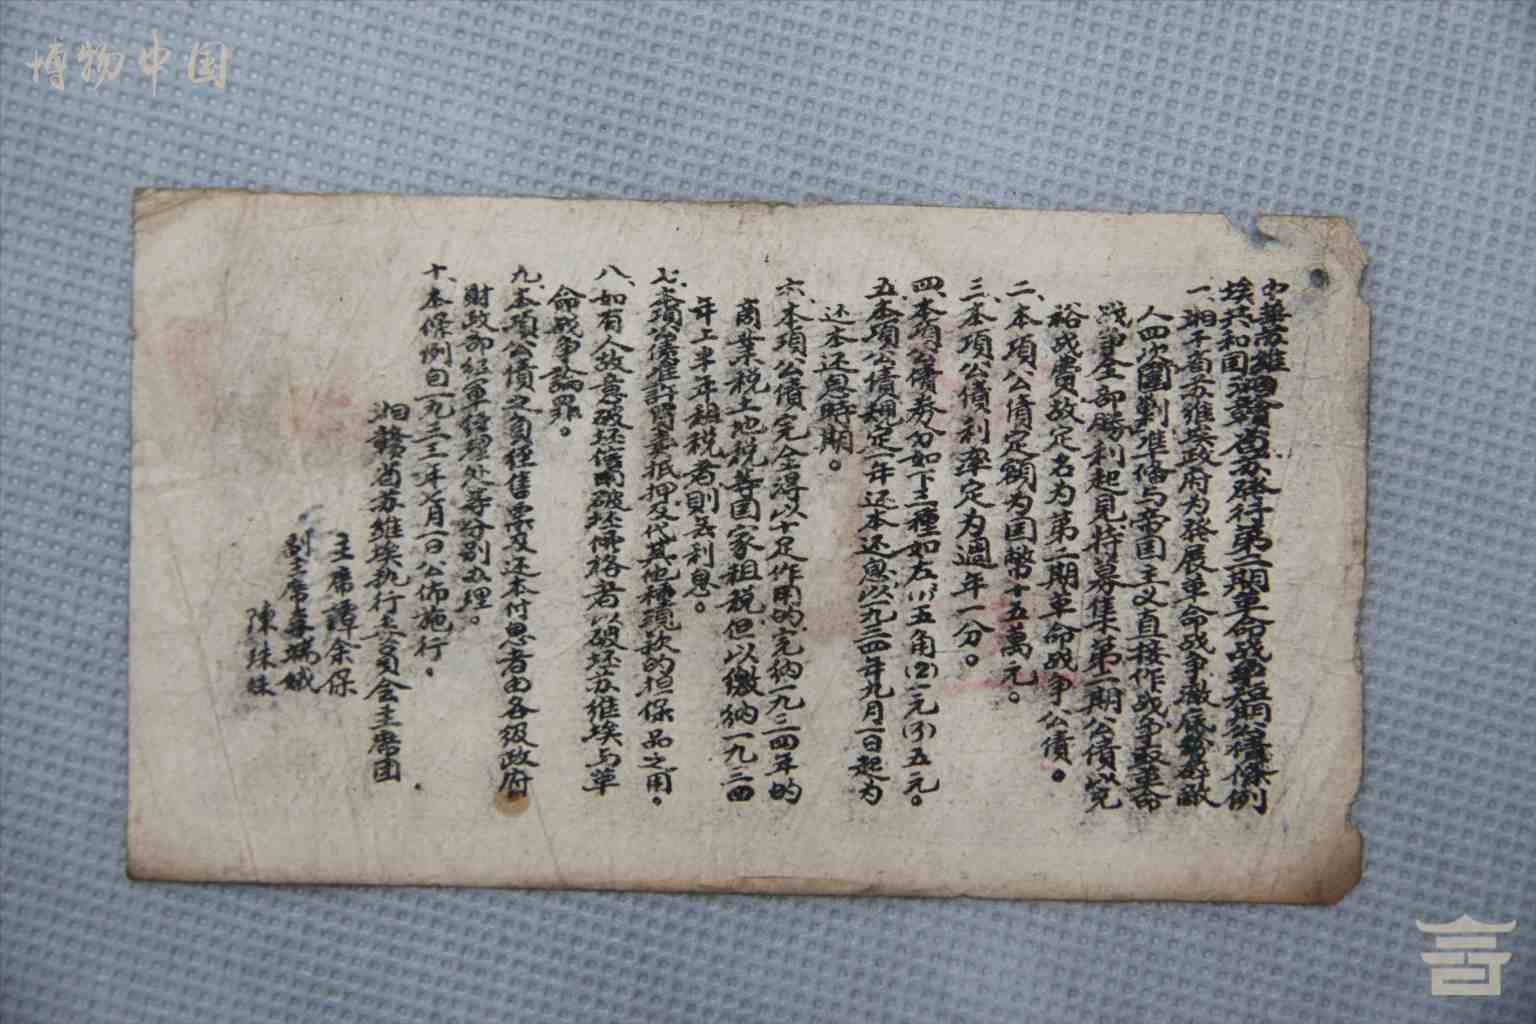 博物中国
中華苏維
埃共和国湘贛省苏發行第二期革命战争短期公債條例
一、湘贛省苏维埃政府为發展革命战争澈底粉碎敵
人四次圍剿准俻与帝国主义直接作战争取革命
战争全部勝利起見特募集第二期公債以充
裕战費故定名为第二期革命战争公債。
二、本項公債定額为国幣十五萬元。
三、本項公債利率定为週年一分。
四、本項公債券分如下三種如左(1)五角(2)一元(3)五元。
五、本項公債規定一年还本还息以一九三四年九月一日起为
还本还息時期。
六、本項公債完全得以十足作用的完納一九三四年的
商業税土地税等国家租税但以繳納一九三四
年上半年租税者則无利息。
七、本項公債准許買賣抵押及代其他種現款的担保品之用。
八、如有人故意破坏信用破坏價格者以破坏苏维埃与革
命战争論罪。
九、本項公債之司经售票及还本付息者由各级政府
財政部红軍经理处等分别办理。
十、本條例自一九三三年七月一日公佈施行。
湘贛省苏維埃执行委員会主席团
主席譚余保
副主席
陳珠妹